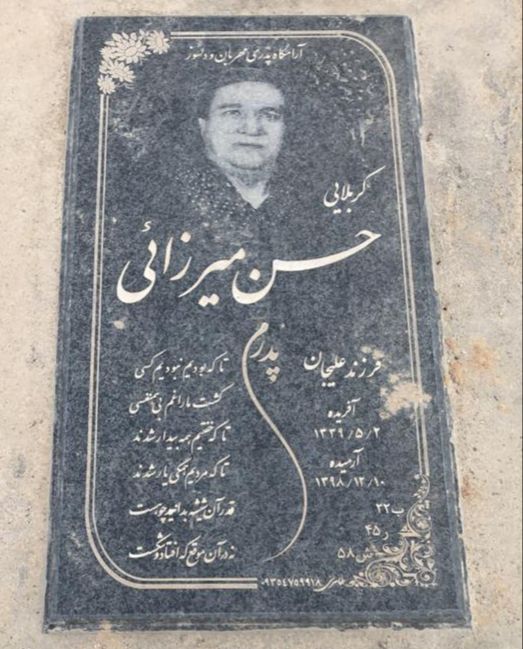 آرامگاه پدری مهربان و دلسوز
کربلایی
حسن میرزائی
فرزند علیجان
آفریده
۱۳۳۹/۵/۲
آرمیده
۱۳۹۸/۱۲/۱۰
پدرم
تا که بودیم نبودیم کسی
کشت ما را غم بی همنفسی
تا که خفتیم همه بیدار شدند
تا که مردیم همگی یار شدند
قدر آن شیشه بدانید چو هست
نه در آن موقع که افتاد و شکست
ب۲۲
ر۴۵
ش۵۸
۰۹۳۵۴۷۵۹۹۱۸